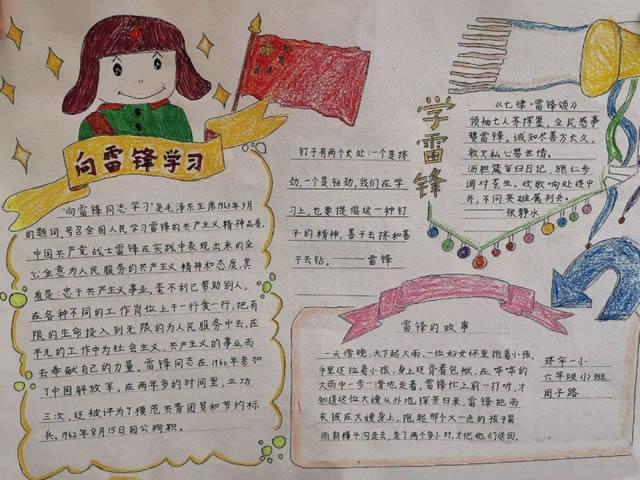 向雷锋学习
"向雷锋同志学习"是毛泽东主席1963年3月
的题词,号召全国人民学习雷锋的共产主义精神品质。
中国共产党战士雷锋在实践中表现出来的全
心全意为人民服务的共产主义精神和态度,其
度是:忠于共产主义事业,毫不利己帮助别人,
在各种不同的工作岗位上干一行爱一行,把有
限的生命投入到无限的为人民服务中去,在
平凡的工作中为社会主义、共产主义的事业而
去奉献自己的力量,雷锋同志在1960年参加
了中国解放军,在两年多的时间里,立功
三次,还被评为了模范共青团员和节约标
兵。1962年8月15日因公殉职。
钉子有两个长处:一个是挤
劲,一个是钻劲,我们在学
习上,也要提倡这一种钉
子的精神,善于去挤和善
于去钻。——雷锋
学雷锋
《七律·雷锋颂》
领袖七人齐挥里,全民感事
赞雷锋。诚知尽善方长久,
敢灭私心易世情。
沥胆篇首归日记,施仁步
调对克生。欢歌响处迷中
外,不问英雄属列
——张静水
雷锋的故事
一天傍晚,天下起大雨,一位妇女怀里抱着小孩,
手里还拉着小孩,身上还背着包袱,在哗哗的
大雨中一步一滑地走着,雷锋忙上前一打听,才
知道这位大嫂从外地探亲归来,雷锋把雨
衣披在大嫂身上,抱起那个大一点的孩子冒
雨朝樟子沟走去,走了两个多小时,才把她们送回。
环宇一小
六年级(2)班
周子路